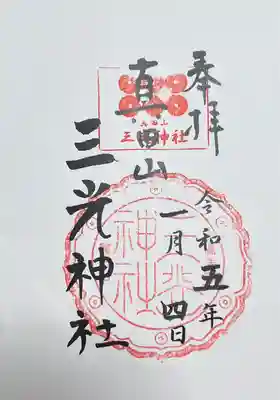 奉拝
真田山
三光神社
令和五年
一月四日
真田山
三光神社
三光
神社